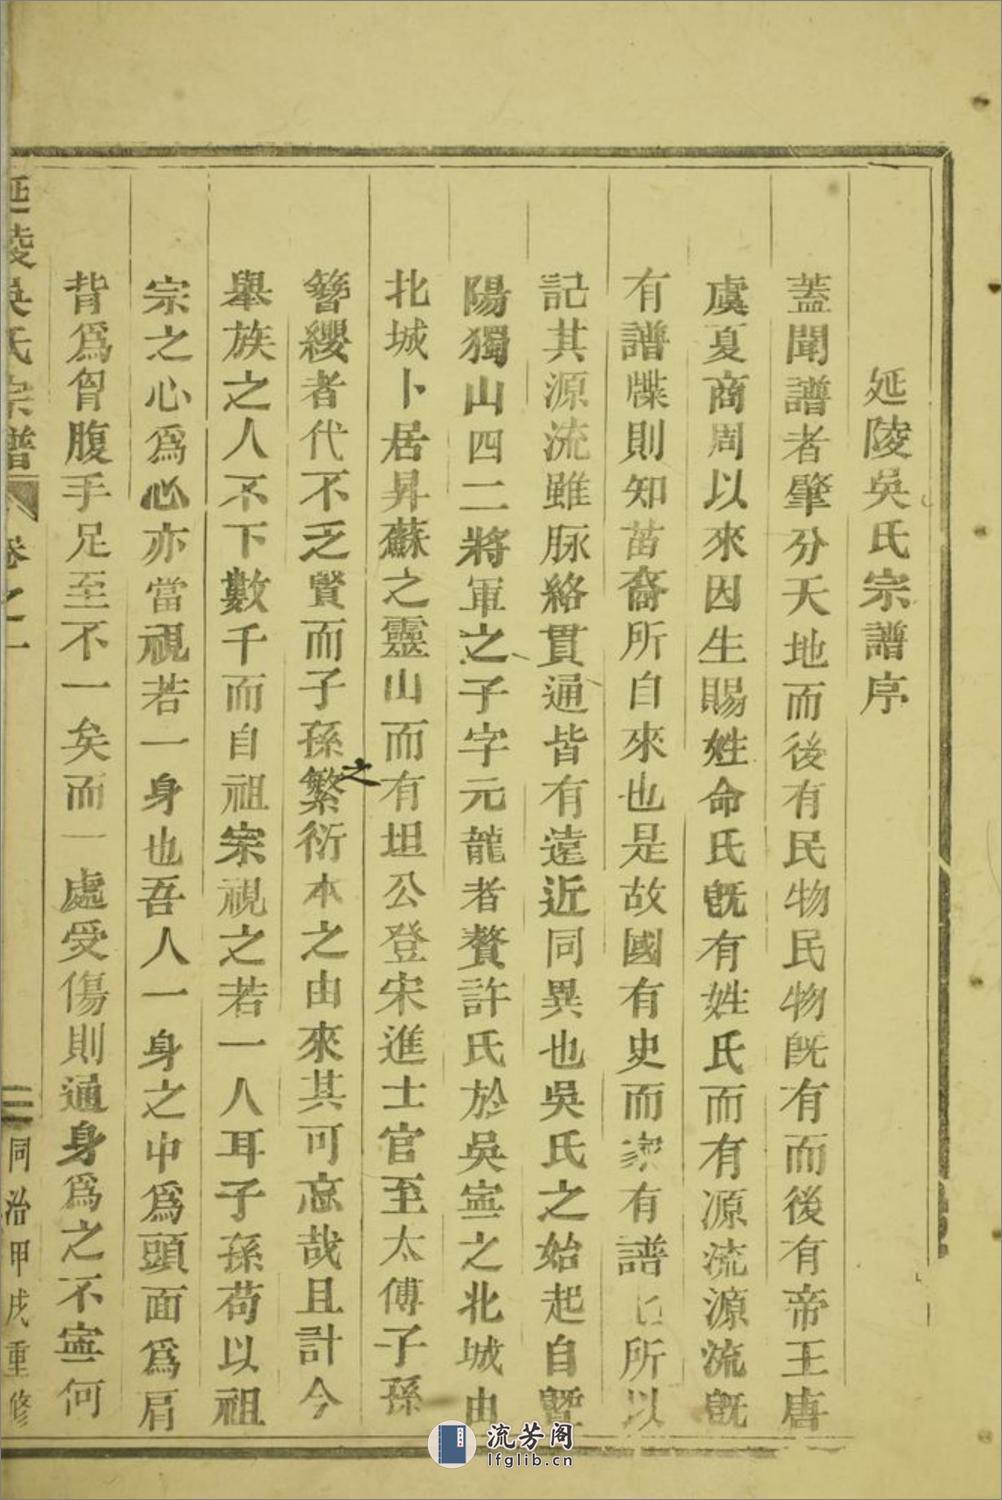 延陵吳氏宗譜序
蓋聞譜者肇分天地而後有民物民物旣有而後有帝王唐
虞夏商周以來因生賜姓命氏旣有姓氏而有源流源流旣
有譜牒則知苗裔所自來也是故國有史而家有譜 所以
記其源流雖脉絡貫通皆有遠近同異也吳氏之始起自暨
陽獨山四二將軍之子字元龍者贅許氏於吳寧之北城由
北城卜居昇蘇之靈山而有坦公登宋進士官至太傅子孫
簪纓者代不乏賢而子孫之繁衍本之由來其可忘哉且計今
舉族之人不下數千而自祖宗視之若一人耳子孫苟以祖
宗之心爲心亦當視若一身也吾人一身之中爲頭面爲肩
背爲胷腹手足至不一矣而一處受傷則通身爲之不寧何
延陵吳氏宗譜 卷之一 二 同治甲戌重修
流芳阁
lfglib.cn